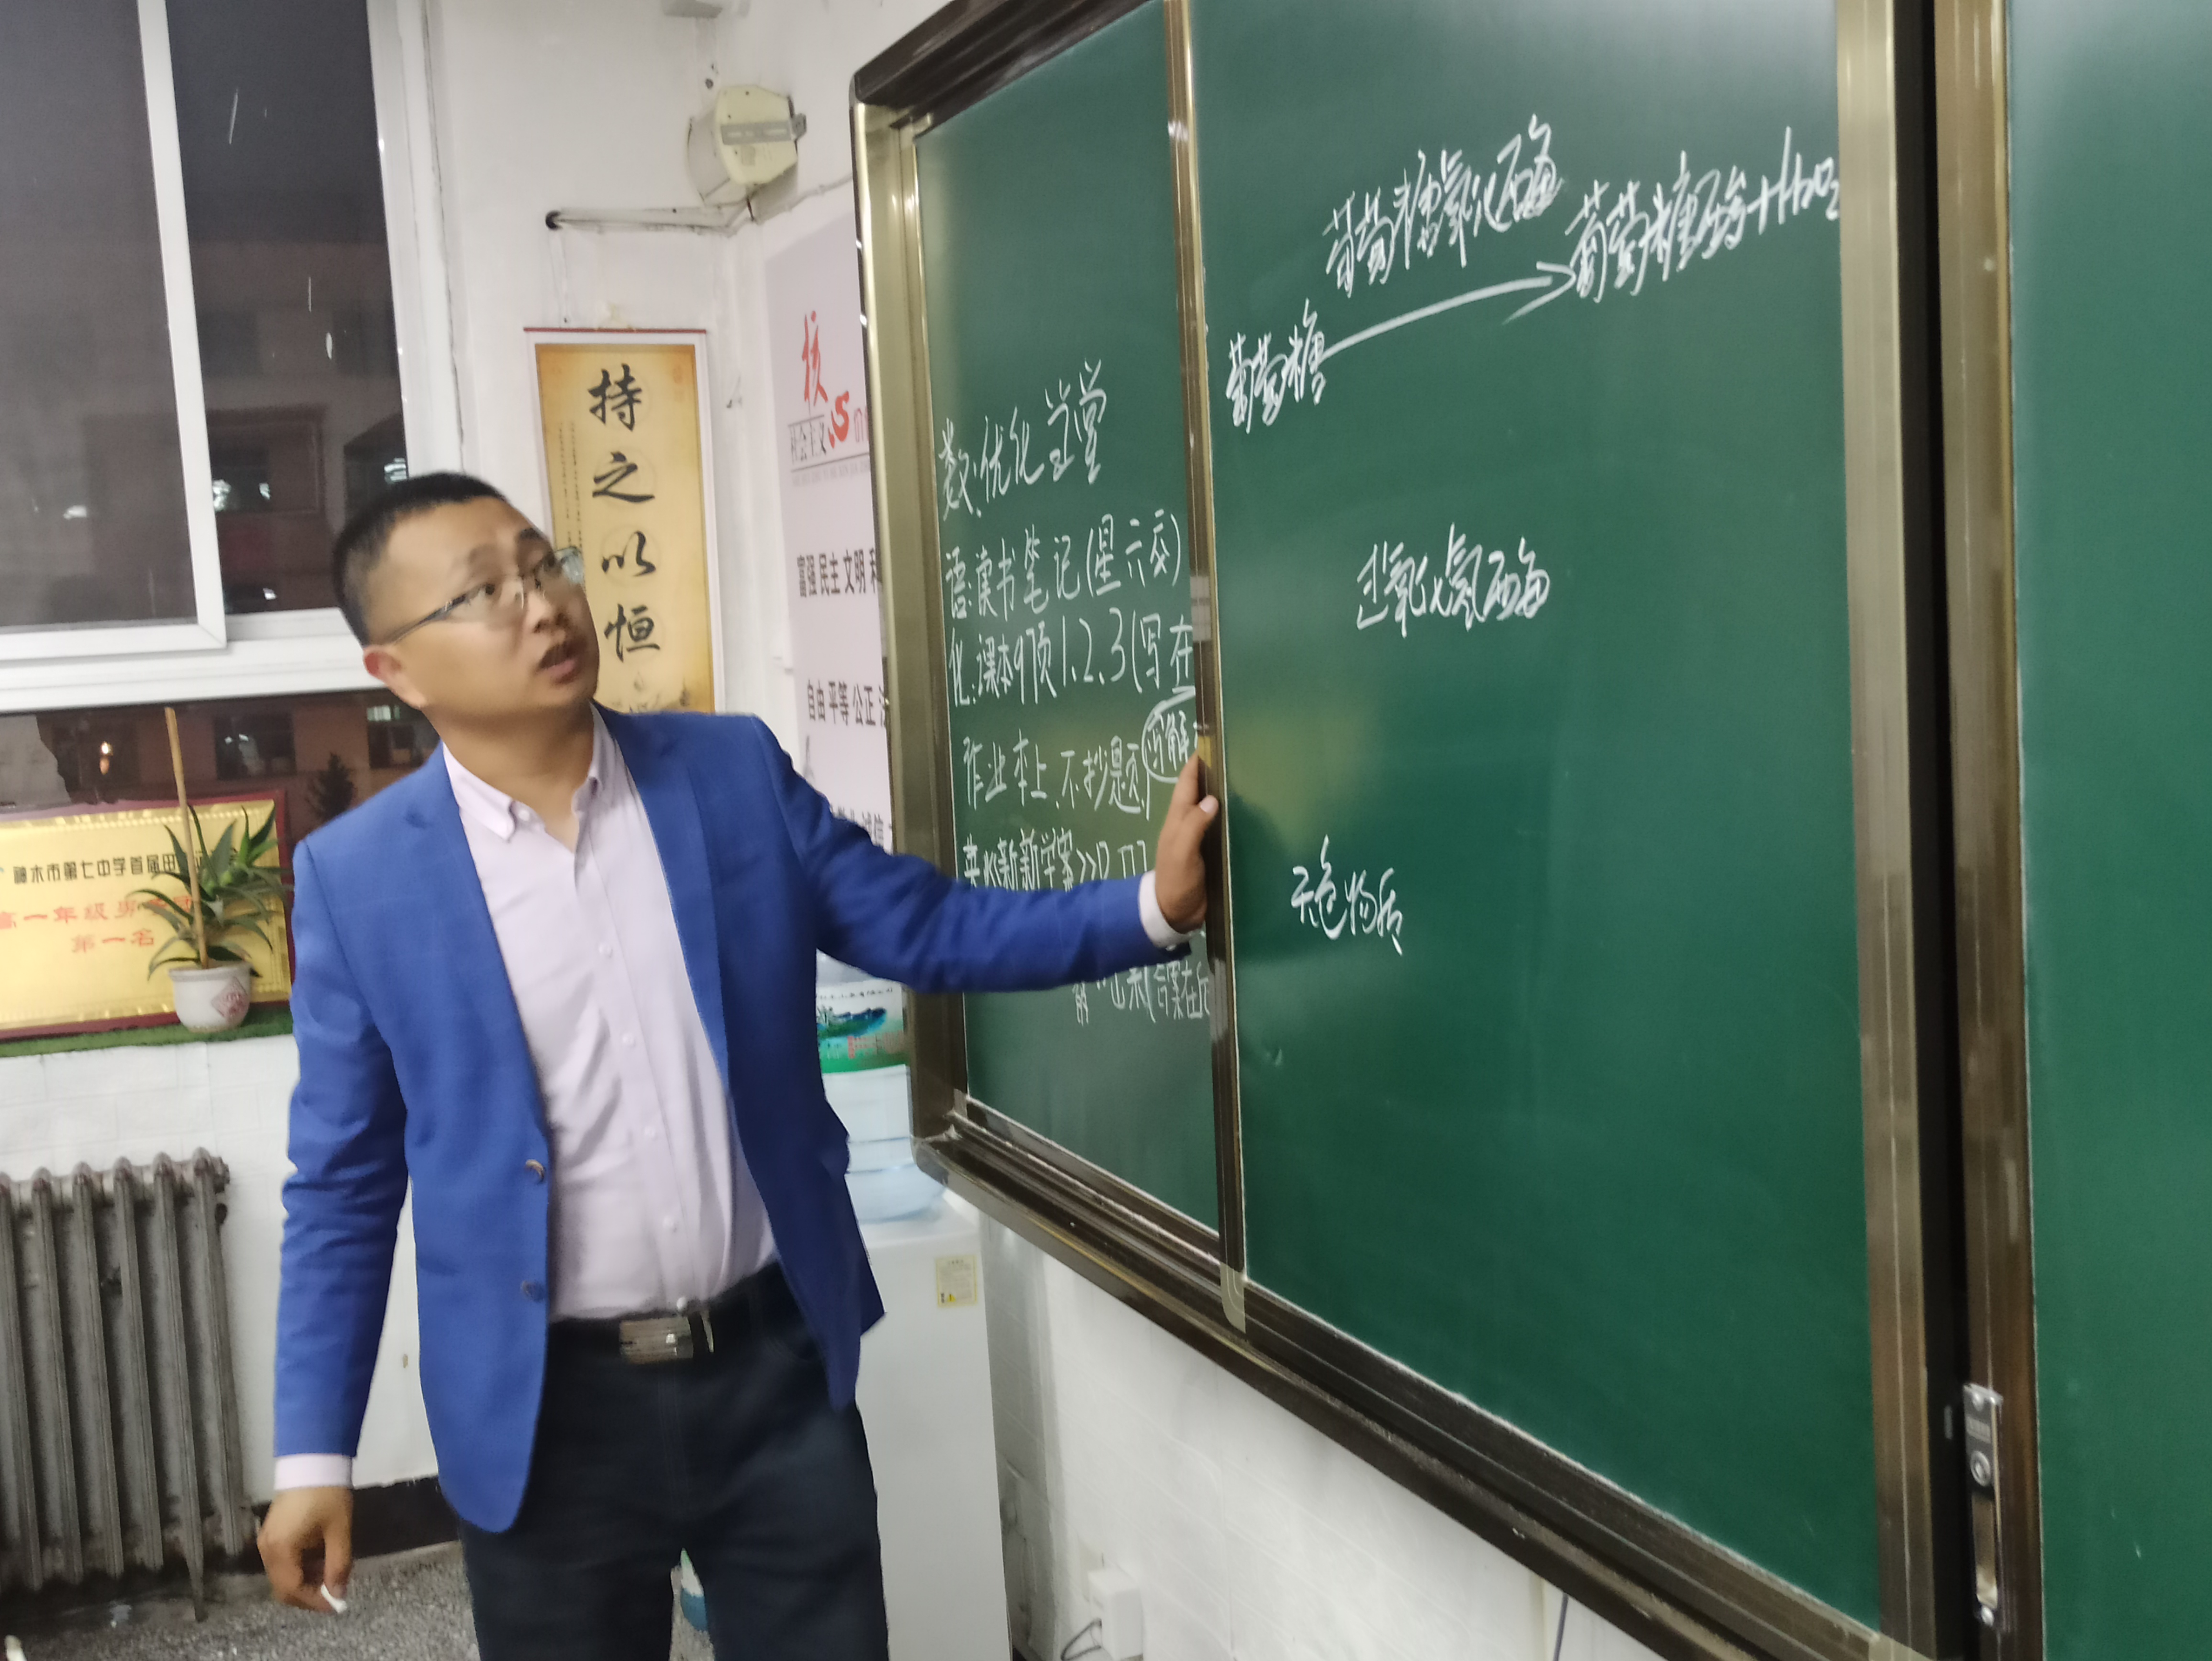 持之以恒
核心
社会主义
富强 民主 文明 和
自由 平等 公正 法
诚信
神木市第七中学首届田
高一年级男
第一名
数:优化学堂
语:读书笔记(星六交)
化:课本9页1、2、3(写在
作业本上,不抄题,
英:《新新学案》P
葡萄糖氧化酶
葡萄糖 → 葡萄糖酸+H2O2
过氧化氢酶
无色物质